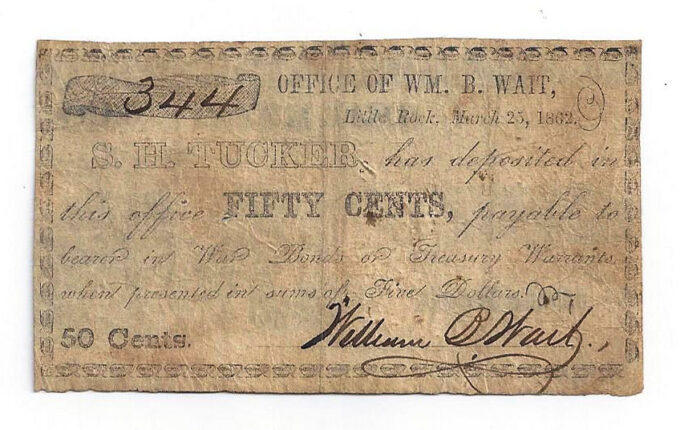 344
OFFICE OF WM. B. WAIT,
Little Rock, March 25, 1862.
S. H. TUCKER, has deposited in
this office FIFTY CENTS, payable to
bearer in War Bonds or Treasury Warrants
when presented in sums of Five Dollars.
50 Cents. William B Wait.